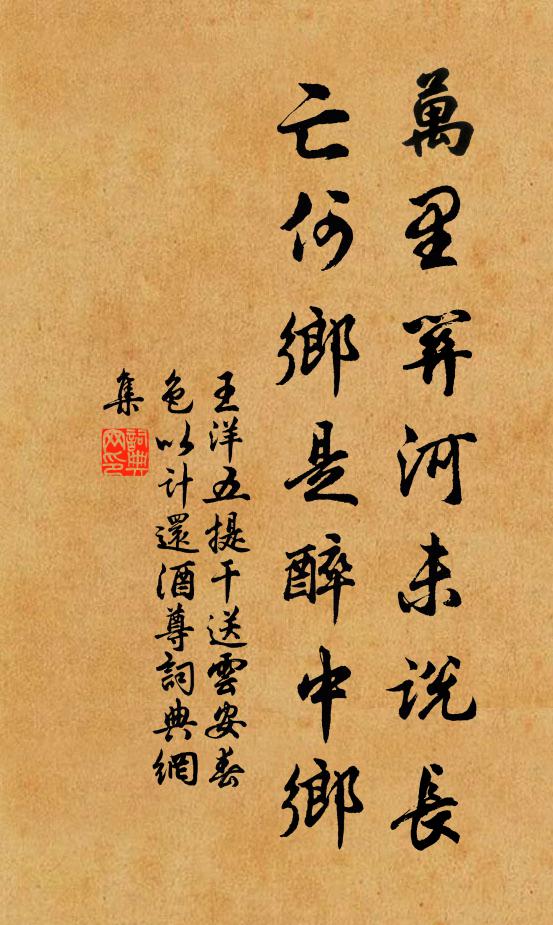 萬里關河未說長
亡何鄉是醉中鄉
王洋五提干送雲安春
色以計還酒尊詞典網
集
詞典网印